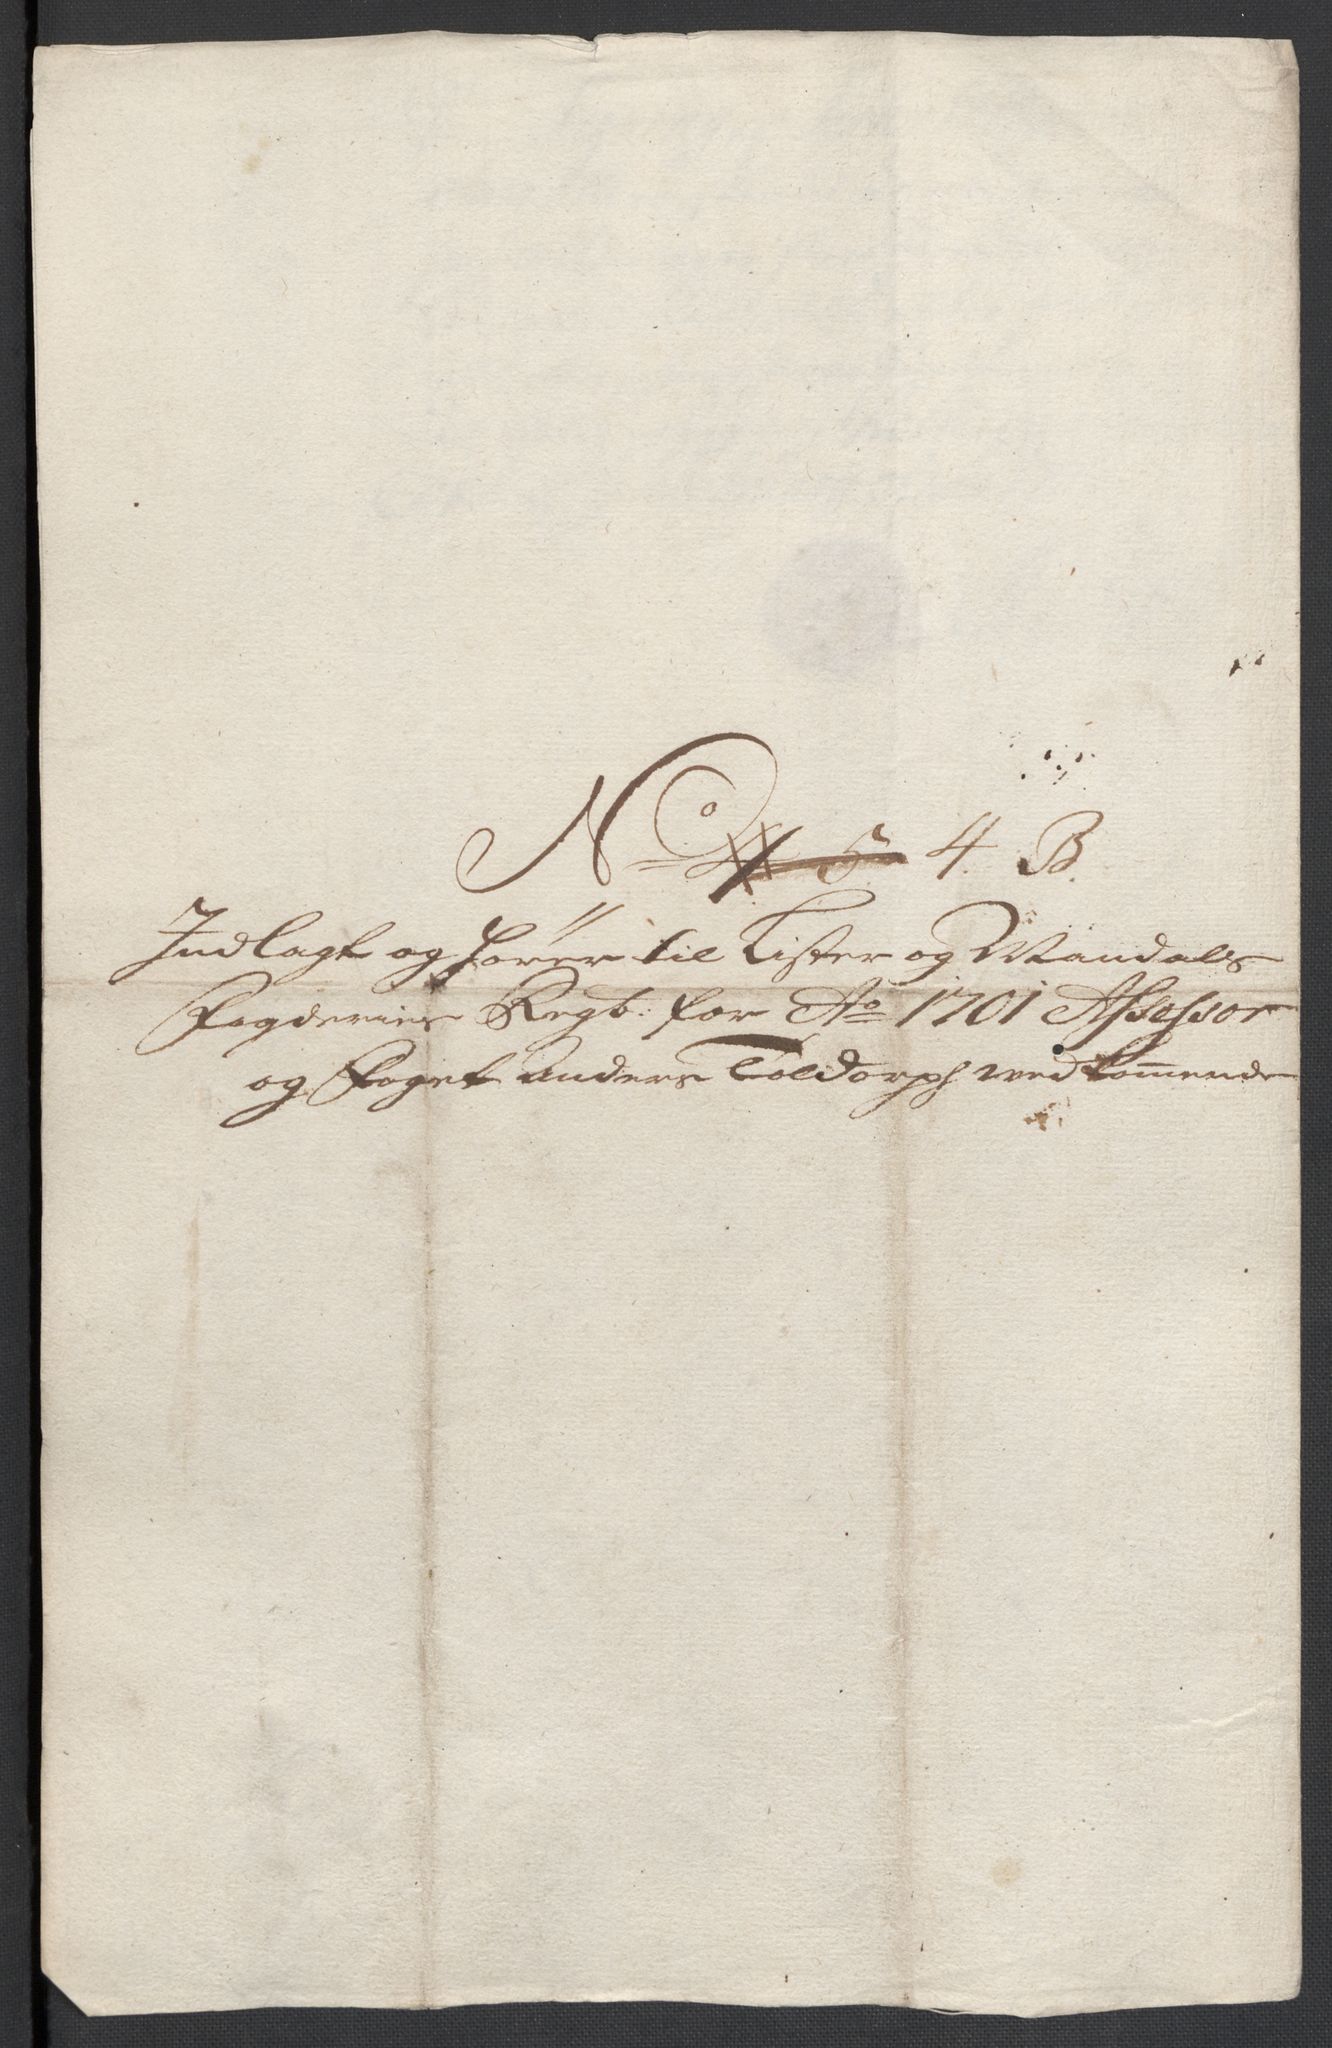 No 4. B.
Indlagt og hører til Lister og Mandals
Fogderies Regb: for Ao 1701 Assessor
og Foget Anders Toldorph vedkommende